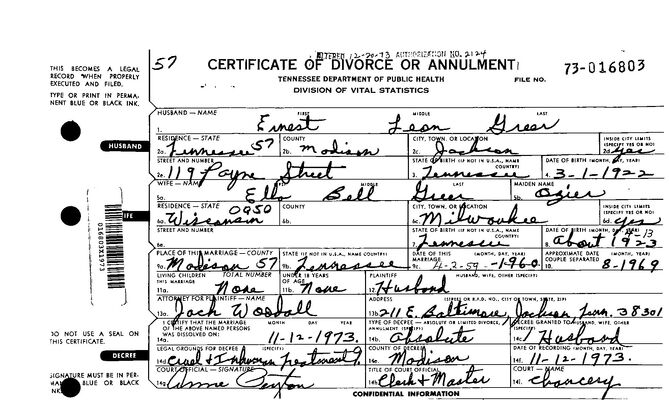 ALTERED 12-20-73 AUTHORIZATION NO. 2124
57 CERTIFICATE OF DIVORCE OR ANNULMENT
TENNESSEE DEPARTMENT OF PUBLIC HEALTH
DIVISION OF VITAL STATISTICS
FILE NO. 73-016803
THIS BECOMES A LEGAL
RECORD WHEN PROPERLY
EXECUTED AND FILED.
TYPE OR PRINT IN PERMA-
NENT BLUE OR BLACK INK.
HUSBAND — NAME FIRST MIDDLE LAST
1. Ernest Leon Greer
HUSBAND
RESIDENCE — STATE COUNTY CITY, TOWN, OR LOCATION INSIDE CITY LIMITS (SPECIFY YES OR NO)
2a. Tennessee 57 2b. Madison 2c. Jackson 2d. yes
STREET AND NUMBER STATE OF BIRTH (IF NOT IN U.S.A., NAME COUNTRY) DATE OF BIRTH (MONTH, DAY, YEAR)
2e. 119 Payne Street 3. Tennessee 4. 3-1-1922
WIFE — NAME FIRST MIDDLE LAST MAIDEN NAME
5a. Ella Bell Greer 5b. Ozier
WIFE
RESIDENCE — STATE COUNTY CITY, TOWN, OR LOCATION INSIDE CITY LIMITS (SPECIFY YES OR NO)
6a. Wisconsin 0950 6b. 6c. Milwaukee 6d. yes
STREET AND NUMBER STATE OF BIRTH (IF NOT IN U.S.A., NAME COUNTRY) DATE OF BIRTH (MONTH, DAY, YEAR)
6e. 7. Tennessee 8. about 1923
PLACE OF THIS MARRIAGE — COUNTY STATE (IF NOT IN U.S.A., NAME COUNTRY) DATE OF THIS MARRIAGE (MONTH, DAY, YEAR) APPROXIMATE DATE COUPLE SEPARATED (MONTH, YEAR)
9a. Madison 57 9b. Tennessee 9c. 4-2-59-1960 10. 8-1969
CHILDREN LIVING TOTAL NUMBER THIS MARRIAGE UNDER 18 YEARS OF AGE PLAINTIFF HUSBAND, WIFE, OTHER (SPECIFY)
11a. None 11b. None 12. Husband
ATTORNEY FOR PLAINTIFF — NAME ADDRESS (STREET OR R.F.D. NO., CITY OR TOWN, STATE, ZIP)
13a. Jack Woodall 13b. 211 E. Baltimore, Jackson, Tenn. 38301
I CERTIFY THAT THE MARRIAGE OF THE ABOVE NAMED PERSONS WAS DISSOLVED ON: MONTH DAY YEAR TYPE OF DECREE — ABSOLUTE OR LIMITED DIVORCE, ANNULMENT (SPECIFY) DECREE GRANTED TO HUSBAND, WIFE, OTHER (SPECIFY)
14a. 11-12-1973. 14b. Absolute 14c. Husband
DO NOT USE A SEAL ON
THIS CERTIFICATE.
DECREE
LEGAL GROUNDS FOR DECREE (SPECIFY) COUNTY OF DECREE DATE OF RECORDING (MONTH, DAY, YEAR)
14d. Cruel & Inhuman Treatment 14e. Madison 14f. 11-12-1973.
SIGNATURE MUST BE IN PER-
BLUE OR BLACK
INK.
COURT OFFICIAL — SIGNATURE TITLE OF COURT OFFICIAL COURT — NAME
14g. 14h. Clerk & Master 14i. Chancery
CONFIDENTIAL INFORMATION
016803X1973